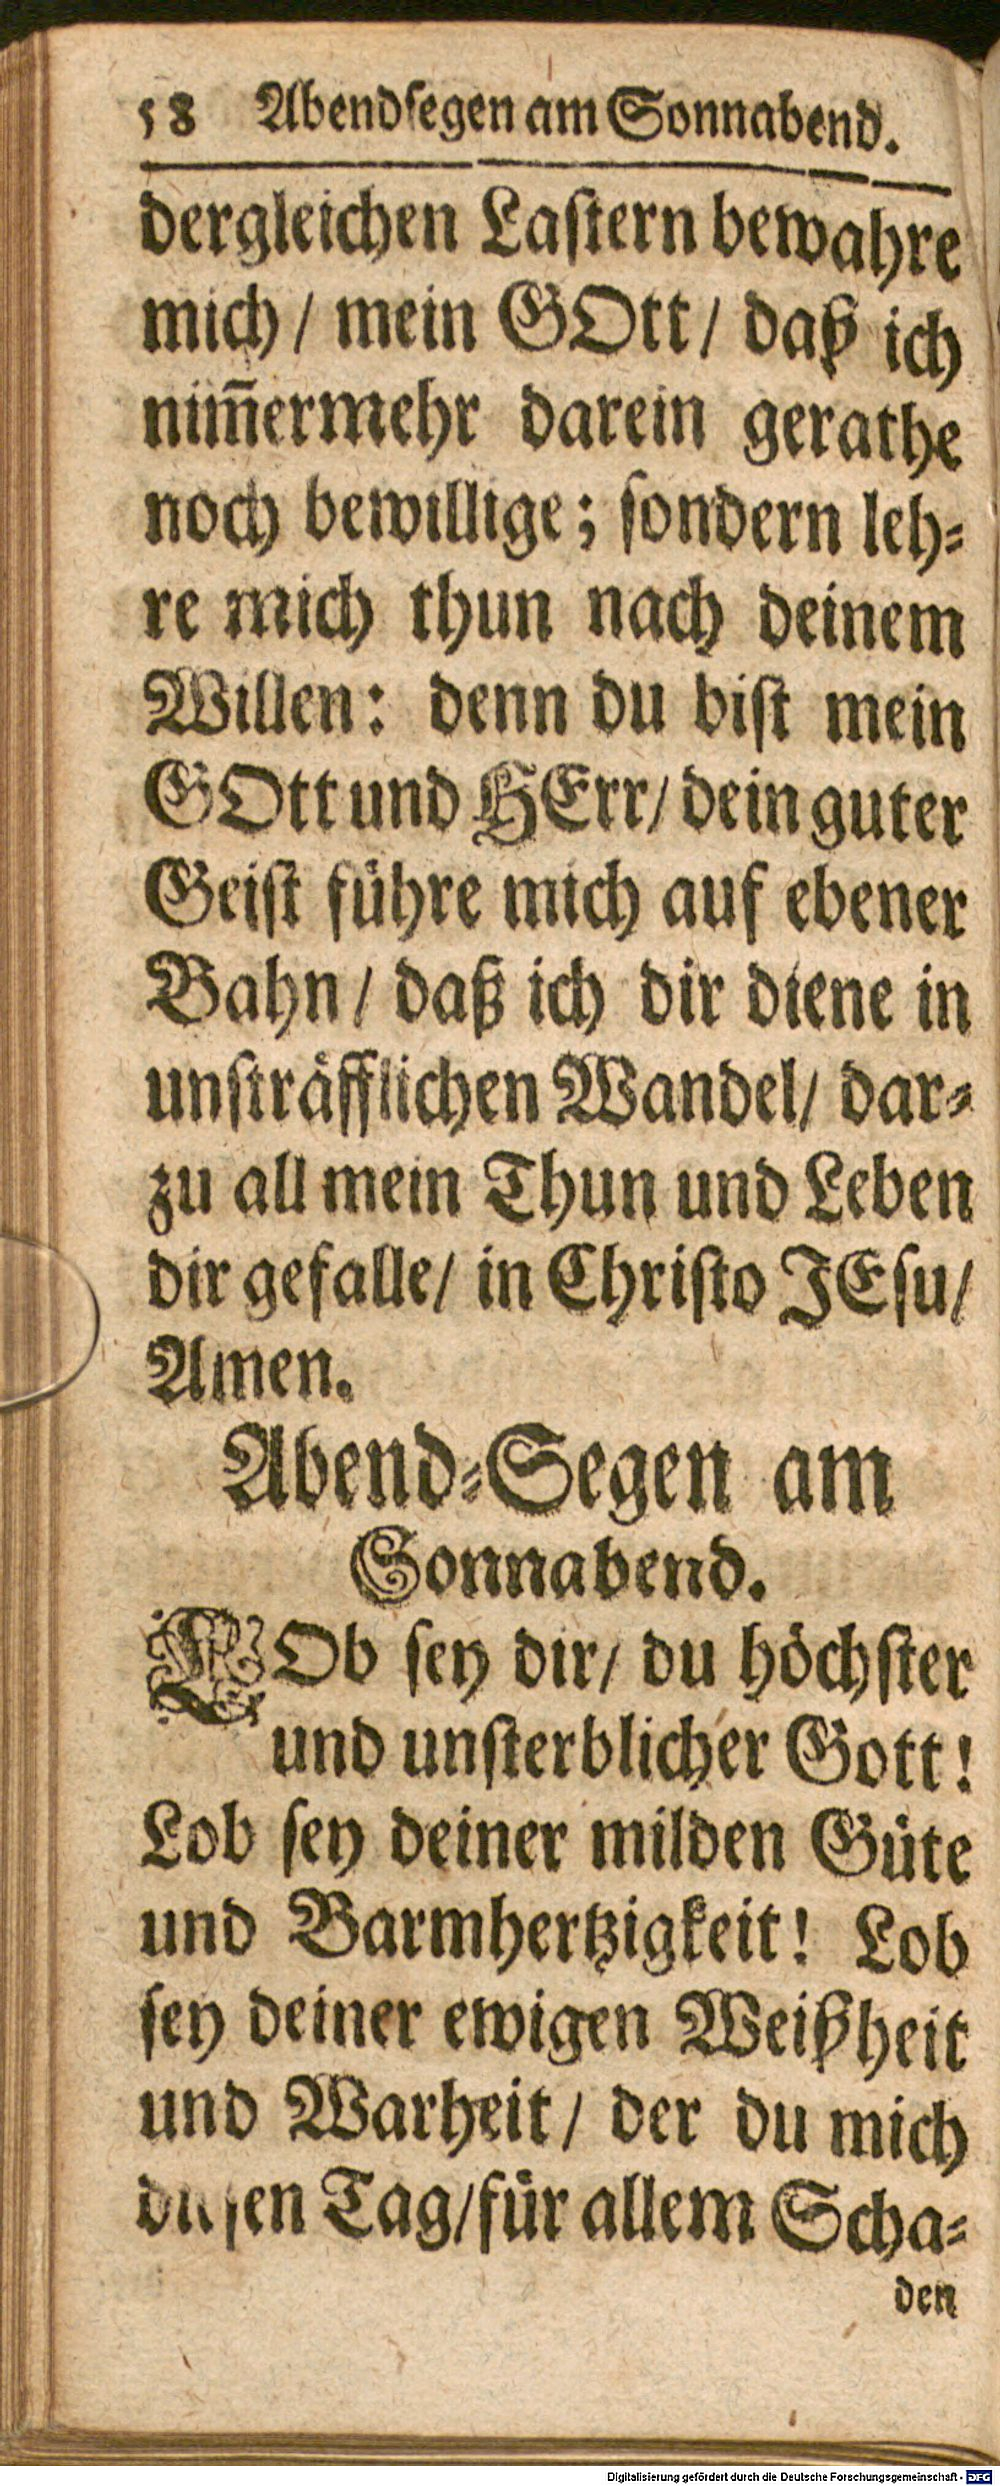 58 Abendsegen am Sonnabend.
dergleichen Lastern bewahre
mich / mein GOtt / daß ich
nim̅ermehr darein gerathe
noch bewillige; sondern leh-
re mich thun nach deinem
Willen: denn du bist mein
GOtt und HErr/ dein guter
Geist führe mich auf ebener
Bahn / daß ich dir diene in
unsträfflichen Wandel/ dar-
zu all mein Thun und Leben
dir gefalle/ in Christo JEsu/
Amen.
Abend-Segen am
Sonnabend.
LOb sey dir/ du höchster
und unsterblicher Gott!
Lob sey deiner milden Güte
und Barmhertzigkeit! Lob
sey deiner ewigen Weißheit
und Warheit / der du mich
diesen Tag/für allem Scha-
den
Digitalisierung gefördert durch die Deutsche Forschungsgemeinschaft - DFG